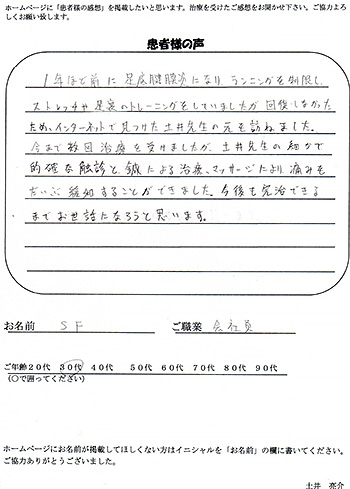 ホームページに「患者様の感想」を掲載したいと思います。治療を受けたご感想をお聞かせ下さい。ご協力よろ
しくお願い致します。
患者様の声
1年ほど前に足底腱膜炎になり、ランニングを制限し、
ストレッチや足裏のトレーニングをしていましたが回復しなかった
ため、インターネットで見つけた土井先生の元を訪ねました。
今まで数回治療を受けましたが、土井先生の細かで
的確な触診と、鍼による治療、マッサージにより、痛みを
だいぶ緩和することができました。今後も完治できる
までお世話になろうと思います。
お名前 SF ご職業 会社員
ご年齢20代 30代 40代 50代 60代 70代 80代 90代
(〇で囲ってください)
ホームページにお名前が掲載してほしくない方はイニシャルを「お名前」の欄に書いてください。
ご協力ありがとうございました。
土井 亮介